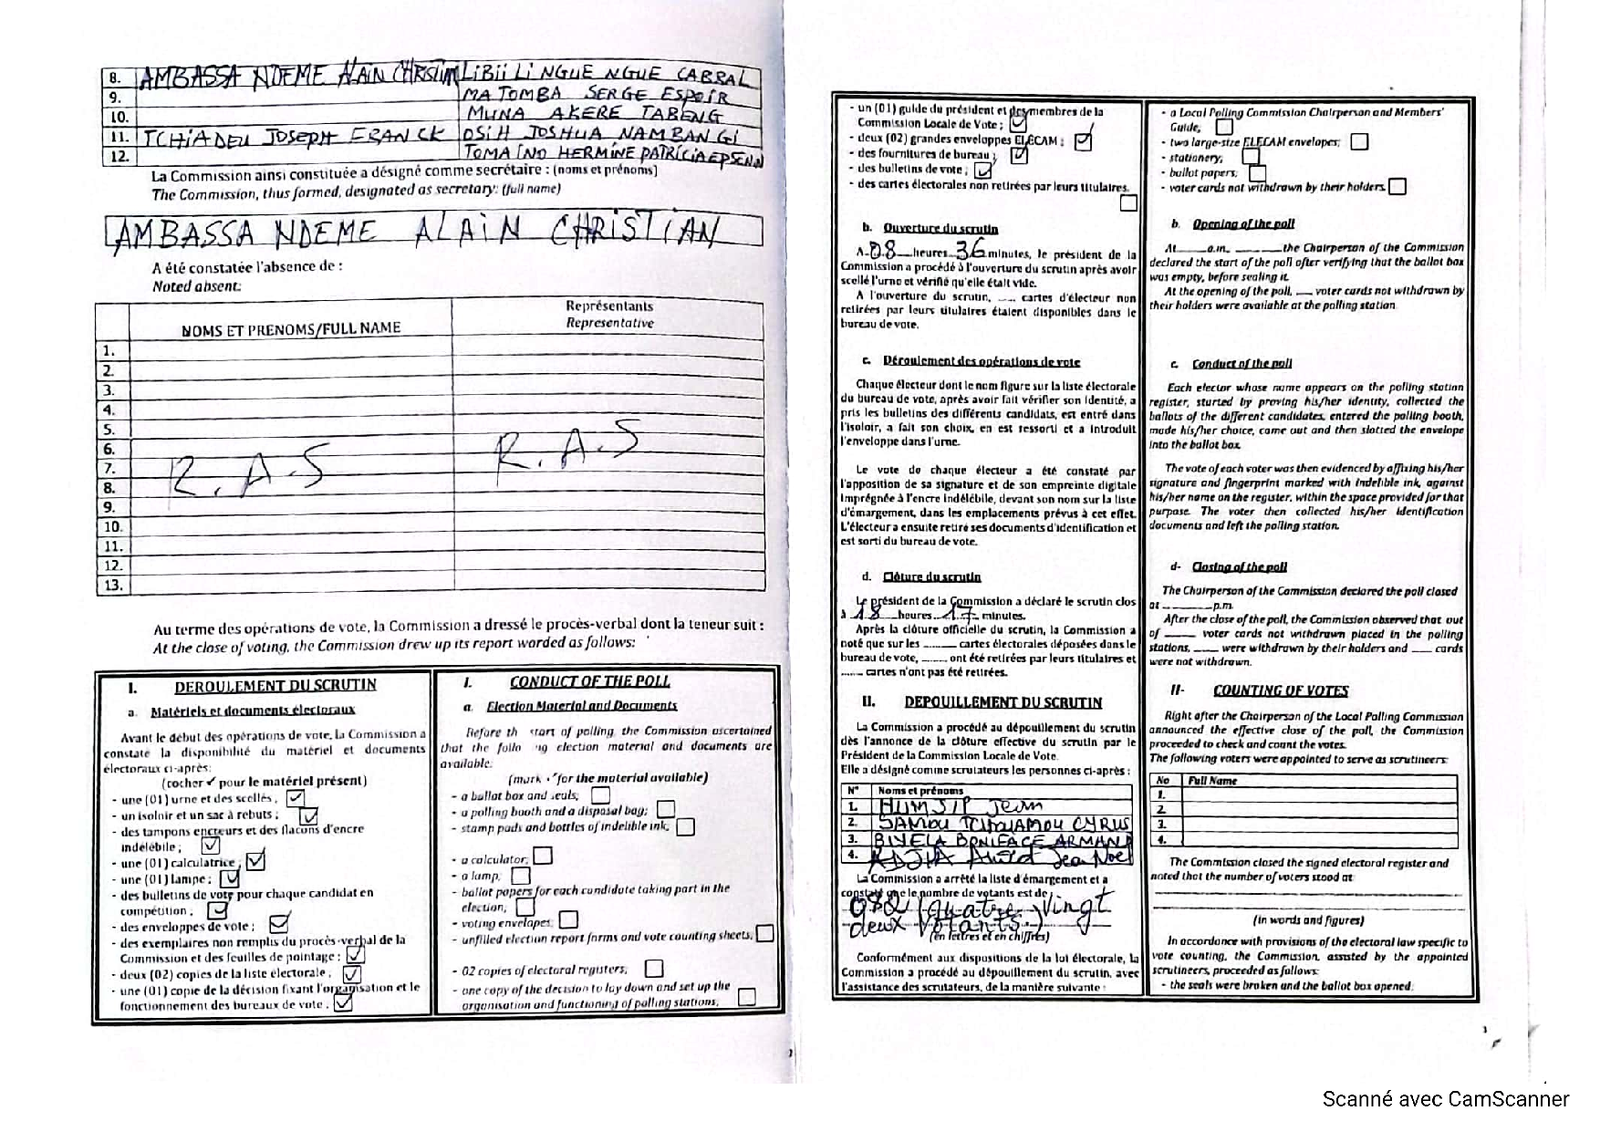 8. AMBASSA NDEME ALAIN CHRISTIAN LIBII LI NGUE NGUE CABRAL
9. MATOMBA SERGE ESPOIR
10. MUNA AKERE TABENG
11. TCHIADEU JOSEPH FRANCK OSIH JOSHUA NAMBANGI
12. TOMAINO HERMINE PATRICIA EPSE NN
La Commission ainsi constituée a désigné comme secrétaire : (noms et prénoms)
The Commission, thus formed, designated as secretary: (full name)
AMBASSA NDEME ALAIN CHRISTIAN
A été constatée l'absence de :
Noted absent:
NOMS ET PRENOMS/FULL NAME
Représentants
Representative
1.
2.
3.
4.
5.
6.
7.
8.
9.
10.
11.
12.
13.
R.A.S R.A.S
Au terme des opérations de vote, la Commission a dressé le procès-verbal dont la teneur suit :
At the close of voting, the Commission drew up its report worded as follows:
I. DEROULEMENT DU SCRUTIN
a. Matériels et documents électoraux
Avant le début des opérations de vote, la Commission a
constaté la disponibilité du matériel et documents
électoraux ci-après:
(cocher ✓ pour le matériel présent)
- une (01) urne et des scellés ;
- un isoloir et un sac à rebuts ;
- des tampons encreurs et des flacons d'encre
indélébile ;
- une (01) calculatrice ;
- une (01) lampe ;
- des bulletins de vote pour chaque candidat en
compétition ;
- des enveloppes de vote ;
- des exemplaires non remplis du procès-verbal de la
Commission et des feuilles de pointage ;
- deux (02) copies de la liste électorale ;
- une (01) copie de la décision fixant l'organisation et le
fonctionnement des bureaux de vote .
I. CONDUCT OF THE POLL
a. Election Material and Documents
Before th start of polling, the Commission ascertained
that the follo ng election material and documents are
available:
(mark ✓ for the material available)
- a ballot box and seals;
- a polling booth and a disposal bag;
- stamp pads and bottles of indelible ink,
- a calculator;
- a lamp;
- ballot papers for each candidate taking part in the
election;
- voting envelopes
- unfilled election report forms and vote counting sheets,
- 02 copies of electoral registers;
- one copy of the decision to lay down and set up the
organisation and functioning of polling stations,
- un (01) guide du président et des membres de la
Commission Locale de Vote ;
- deux (02) grandes enveloppes ELECAM ;
- des fournitures de bureau ;
- des bulletins de vote ;
- des cartes électorales non retirées par leurs titulaires.
b. Ouverture du scrutin
A 08 heures 36 minutes, le président de la
Commission a procédé à l'ouverture du scrutin après avoir
scellé l'urne et vérifié qu'elle était vide.
A l'ouverture du scrutin, .... cartes d'électeur non
retirées par leurs titulaires étaient disponibles dans le
bureau de vote.
c. Déroulement des opérations de vote
Chaque électeur dont le nom figure sur la liste électorale
du bureau de vote, après avoir fait vérifier son identité, a
pris les bulletins des différents candidats, est entré dans
l'isoloir, a fait son choix, en est ressorti et a introduit
l'enveloppe dans l'urne.
Le vote de chaque électeur a été constaté par
l'apposition de sa signature et de son empreinte digitale
imprégnée à l'encre indélébile, devant son nom sur la liste
d'émargement, dans les emplacements prévus à cet effet.
L'électeur a ensuite retiré ses documents d'identification et
est sorti du bureau de vote.
d. Clôture du scrutin
Le président de la Commission a déclaré le scrutin clos
à 18 heures 17 minutes.
Après la clôture officielle du scrutin, la Commission a
noté que sur les ........ cartes électorales déposées dans le
bureau de vote, ....... ont été retirées par leurs titulaires et
...... cartes n'ont pas été retirées.
II. DEPOUILLEMENT DU SCRUTIN
La Commission a procédé au dépouillement du scrutin
dès l'annonce de la clôture effective du scrutin par le
Président de la Commission Locale de Vote.
Elle a désigné comme scrutateurs les personnes ci-après :
N° Noms et prénoms
1. Jean
2. CYRUS
3. BONIFACE ARMAND
4. Jean Noel
La Commission a arrêté la liste d'émargement et a
constaté que le nombre de votants est de
082 (quatre-vingt
deux votants)
(en lettres et en chiffres)
Conformément aux dispositions de la loi électorale, la
Commission a procédé au dépouillement du scrutin, avec
l'assistance des scrutateurs, de la manière suivante :
- a Local Polling Commission Chairperson and Members'
Guide,
- two large-size ELECAM envelopes;
- stationery;
- ballot papers;
- voter cards not withdrawn by their holders
b. Opening of the poll
At____a.m. ______the Chairperson of the Commission
declared the start of the poll after verifying that the ballot box
was empty, before sealing it.
At the opening of the poll, ___ voter cards not withdrawn by
their holders were available at the polling station.
c. Conduct of the poll
Each elector whose name appears on the polling station
register, started by proving his/her identity, collected the
ballots of the different candidates, entered the polling booth,
made his/her choice, came out and then slotted the envelope
into the ballot box.
The vote of each voter was then evidenced by affixing his/her
signature and fingerprint marked with indelible ink, against
his/her name on the register, within the space provided for that
purpose. The voter then collected his/her identification
documents and left the polling station.
d- Closing of the poll
The Chairperson of the Commission declared the poll closed
at ________p.m.
After the close of the poll, the Commission observed that out
of _____ voter cards not withdrawn placed in the polling
stations, ____ were withdrawn by their holders and ____ cards
were not withdrawn.
II- COUNTING OF VOTES
Right after the Chairperson of the Local Polling Commission
announced the effective close of the poll, the Commission
proceeded to check and count the votes.
The following voters were appointed to serve as scrutineers:
No Full Name
1.
2.
3.
4.
The Commission closed the signed electoral register and
noted that the number of voters stood at
(in words and figures)
In accordance with provisions of the electoral law specific to
vote counting, the Commission, assisted by the appointed
scrutineers, proceeded as follows:
- the seals were broken and the ballot box opened;
Scanné avec CamScanner